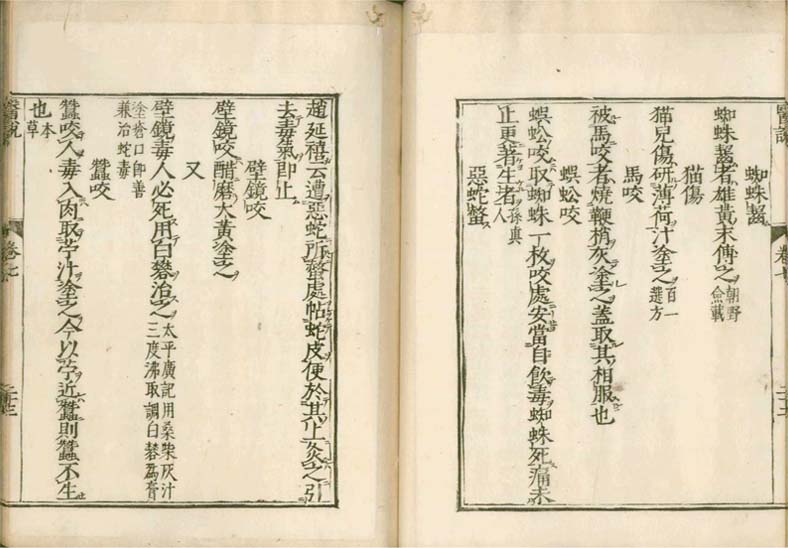 蜘蛛齧
蜘蛛齧者雄黄末傅之朝野僉載
猫傷
猫兒傷研薄荷汁塗之百一選方
馬咬
被馬咬者燒鞭梢灰塗之蓋取其相服也
蜈蚣咬
蜈蚣咬取蜘蛛一枚咬處安當自飲毒蜘蛛死痛未
止更著生者孫真人
惡蛇螫
醫說
卷七
二十三
趙延禧云遭惡蛇所螫處帖蛇皮便於其上灸之引
去毒氣即止
壁鏡咬
壁鏡咬醋磨大黄塗之
又
壁鏡毒人必死用白礬治之太平廣記用桑柴灰汁三度沸取調白礬爲膏
塗瘡口即差兼治蛇毒
蠶咬
蠶咬人毒入肉取苧汁塗之今以苧近蠶則蠶不生
也本草
醫說
卷七
二十三